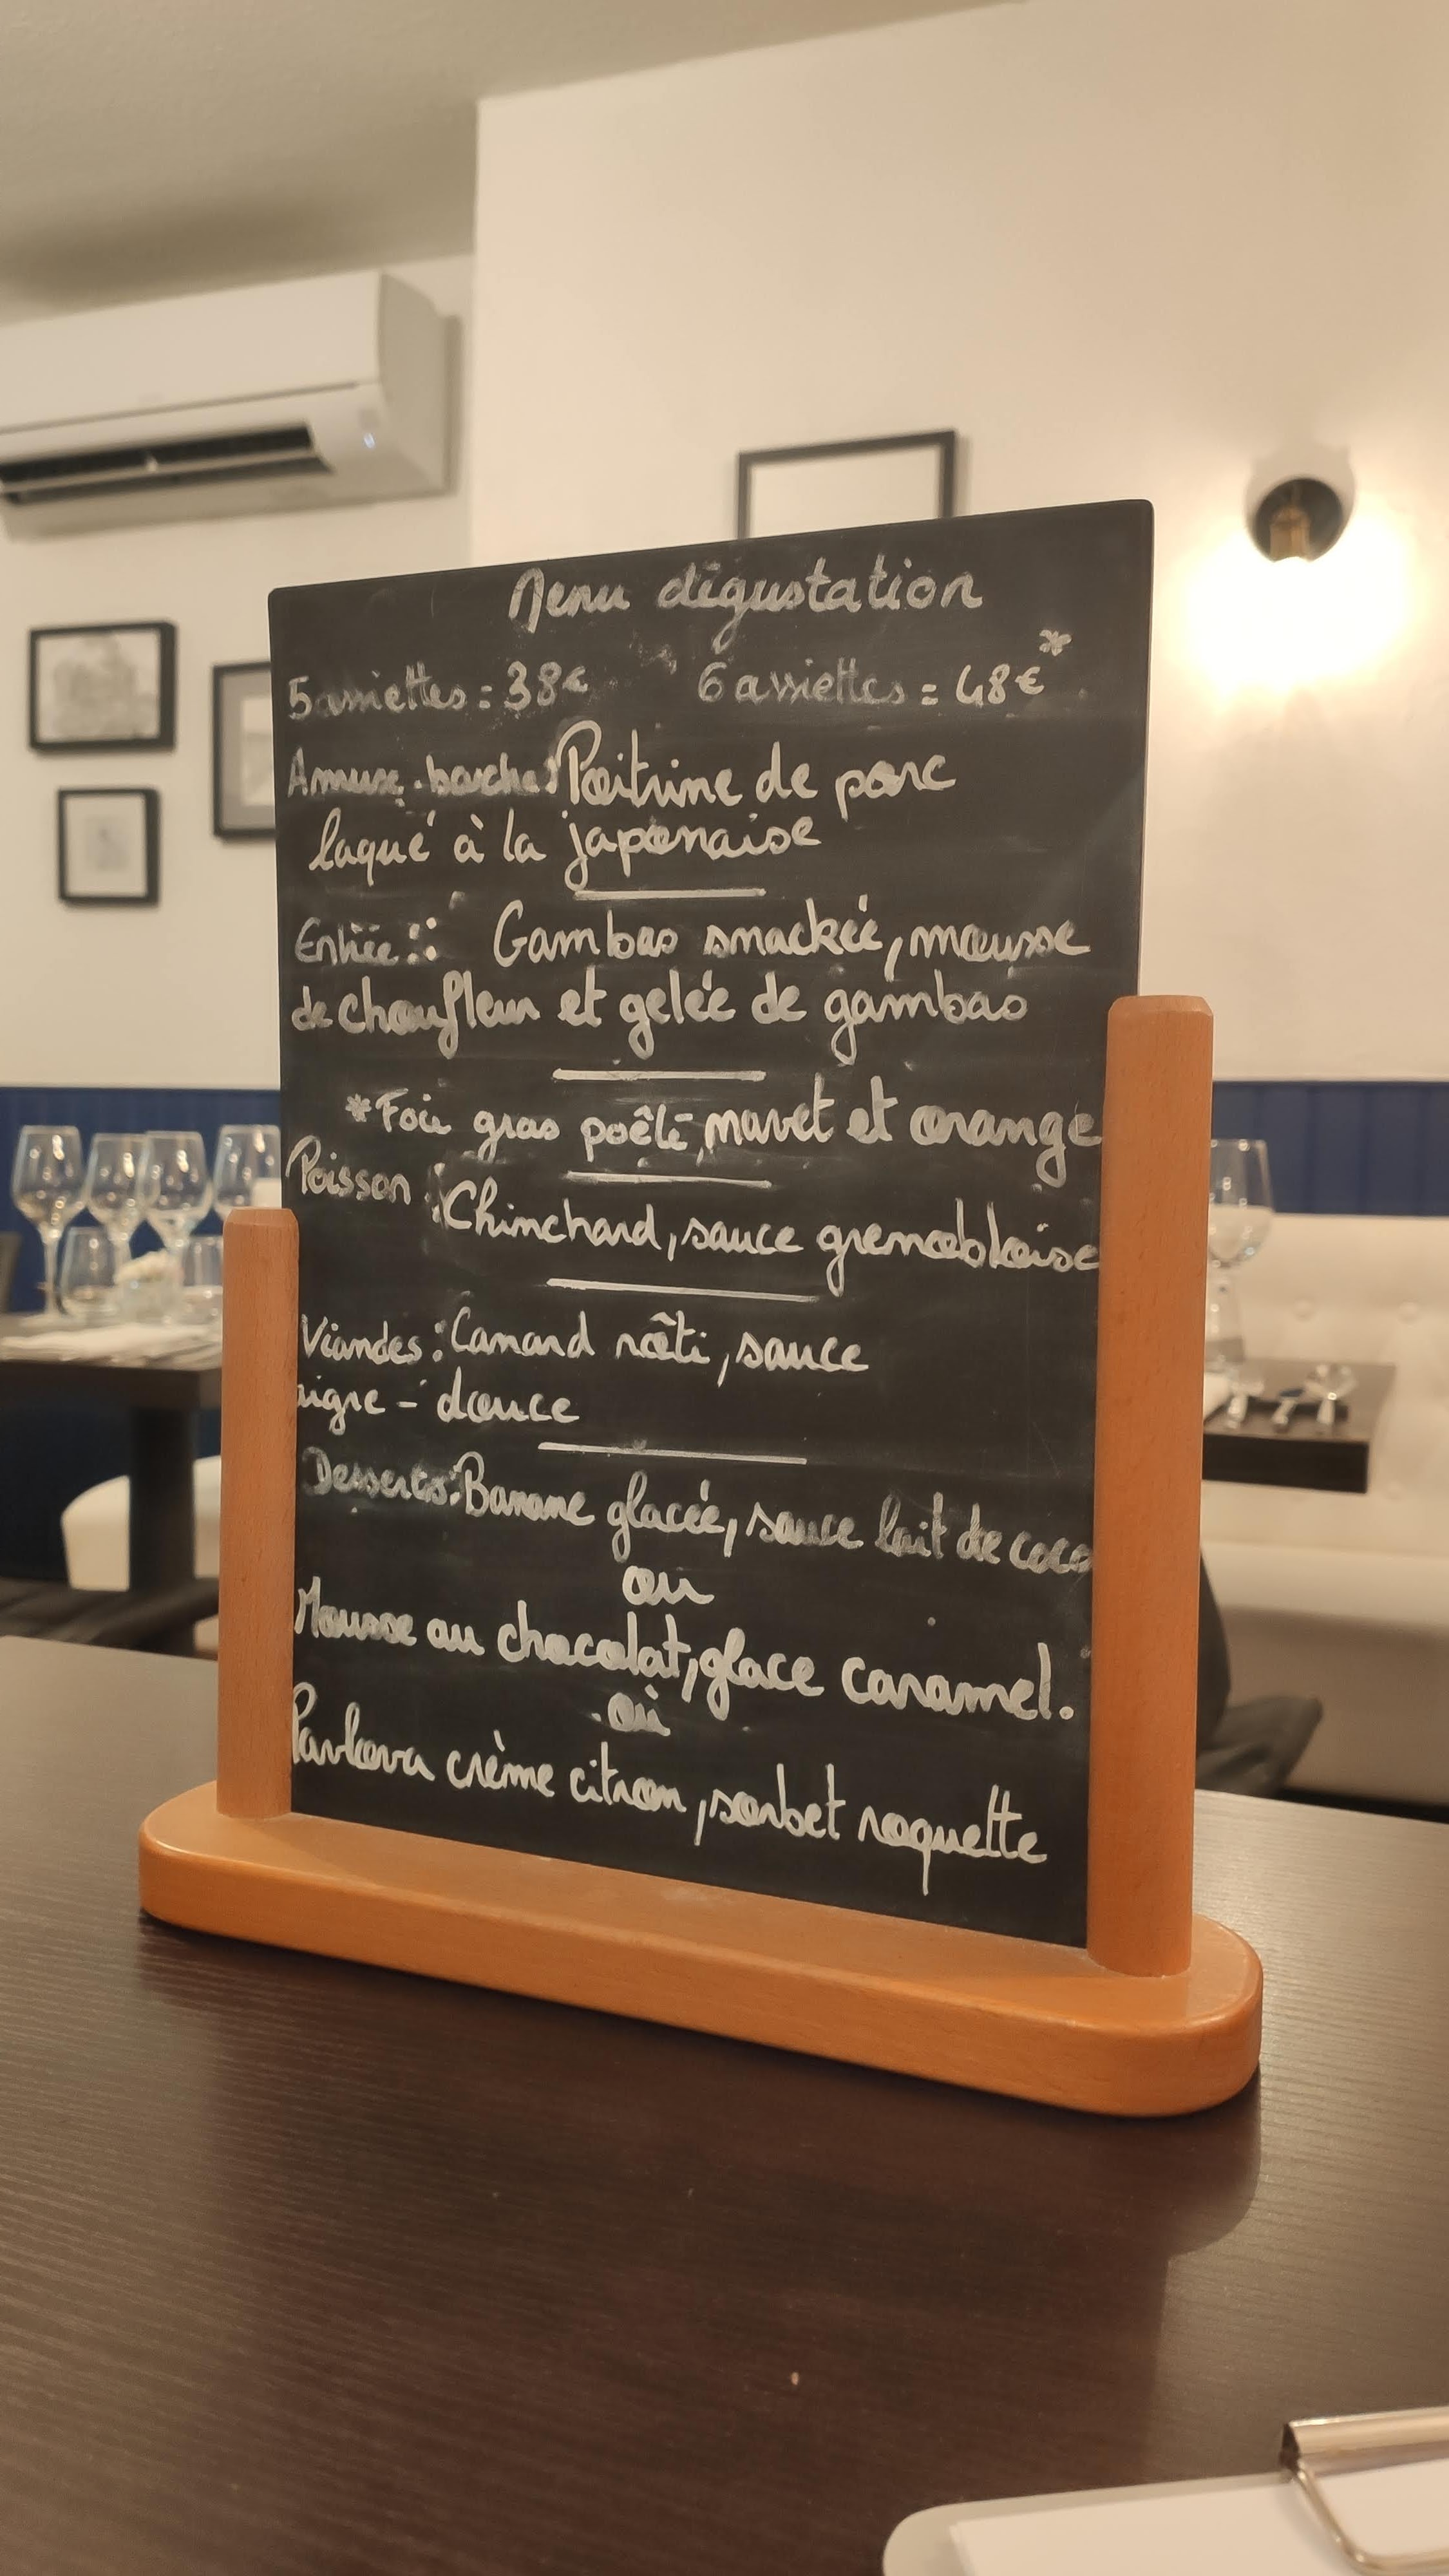 Menu dégustation
5 assiettes = 38€ 6 assiettes = 48€*
Amuse-bouche: Poitrine de porc
laqué à la japonaise
Entrée : Gambas smackée, mousse
de choufleur et gelée de gambas
*Foie gras poêlé, navet et orange
Poisson : Chinchard, sauce grenobloise
Viandes : Canard rôti, sauce
aigre-douce
Desserts: Banane glacée, sauce lait de coco
ou
Mousse au chocolat, glace caramel.
ou
Pavlova crème citron, sorbet roquette